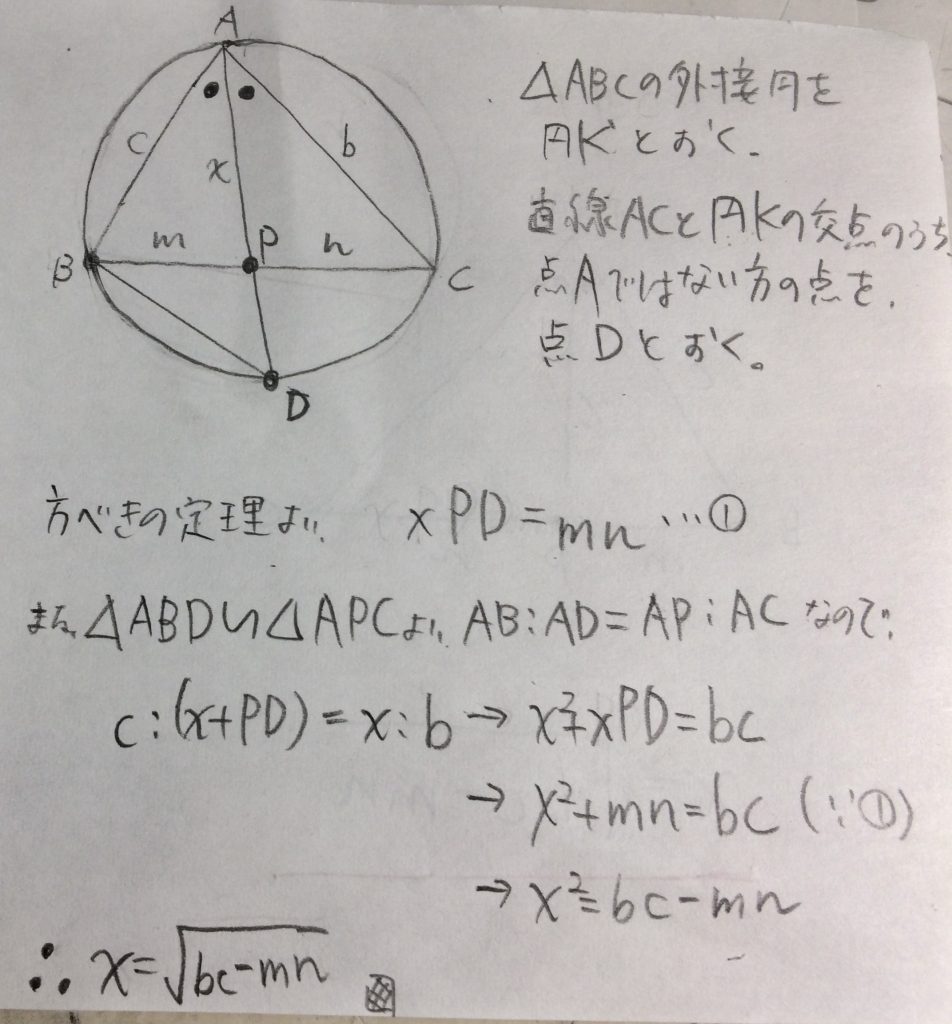 A
c
x
b
B
m
P
n
C
D
△ABCの外接円を
円Kとおく.
直線ACと円Kの交点のうち
点Aではない方の点を,
点Dとおく。
方べきの定理より, xPD=mn …①
また, △ABD∽△APCより, AB:AD=AP:ACなので:
c:(x+PD)=x:b→x²+xPD=bc
→x²+mn=bc (∵①)
→x²=bc-mn
∴ x=√bc-mn